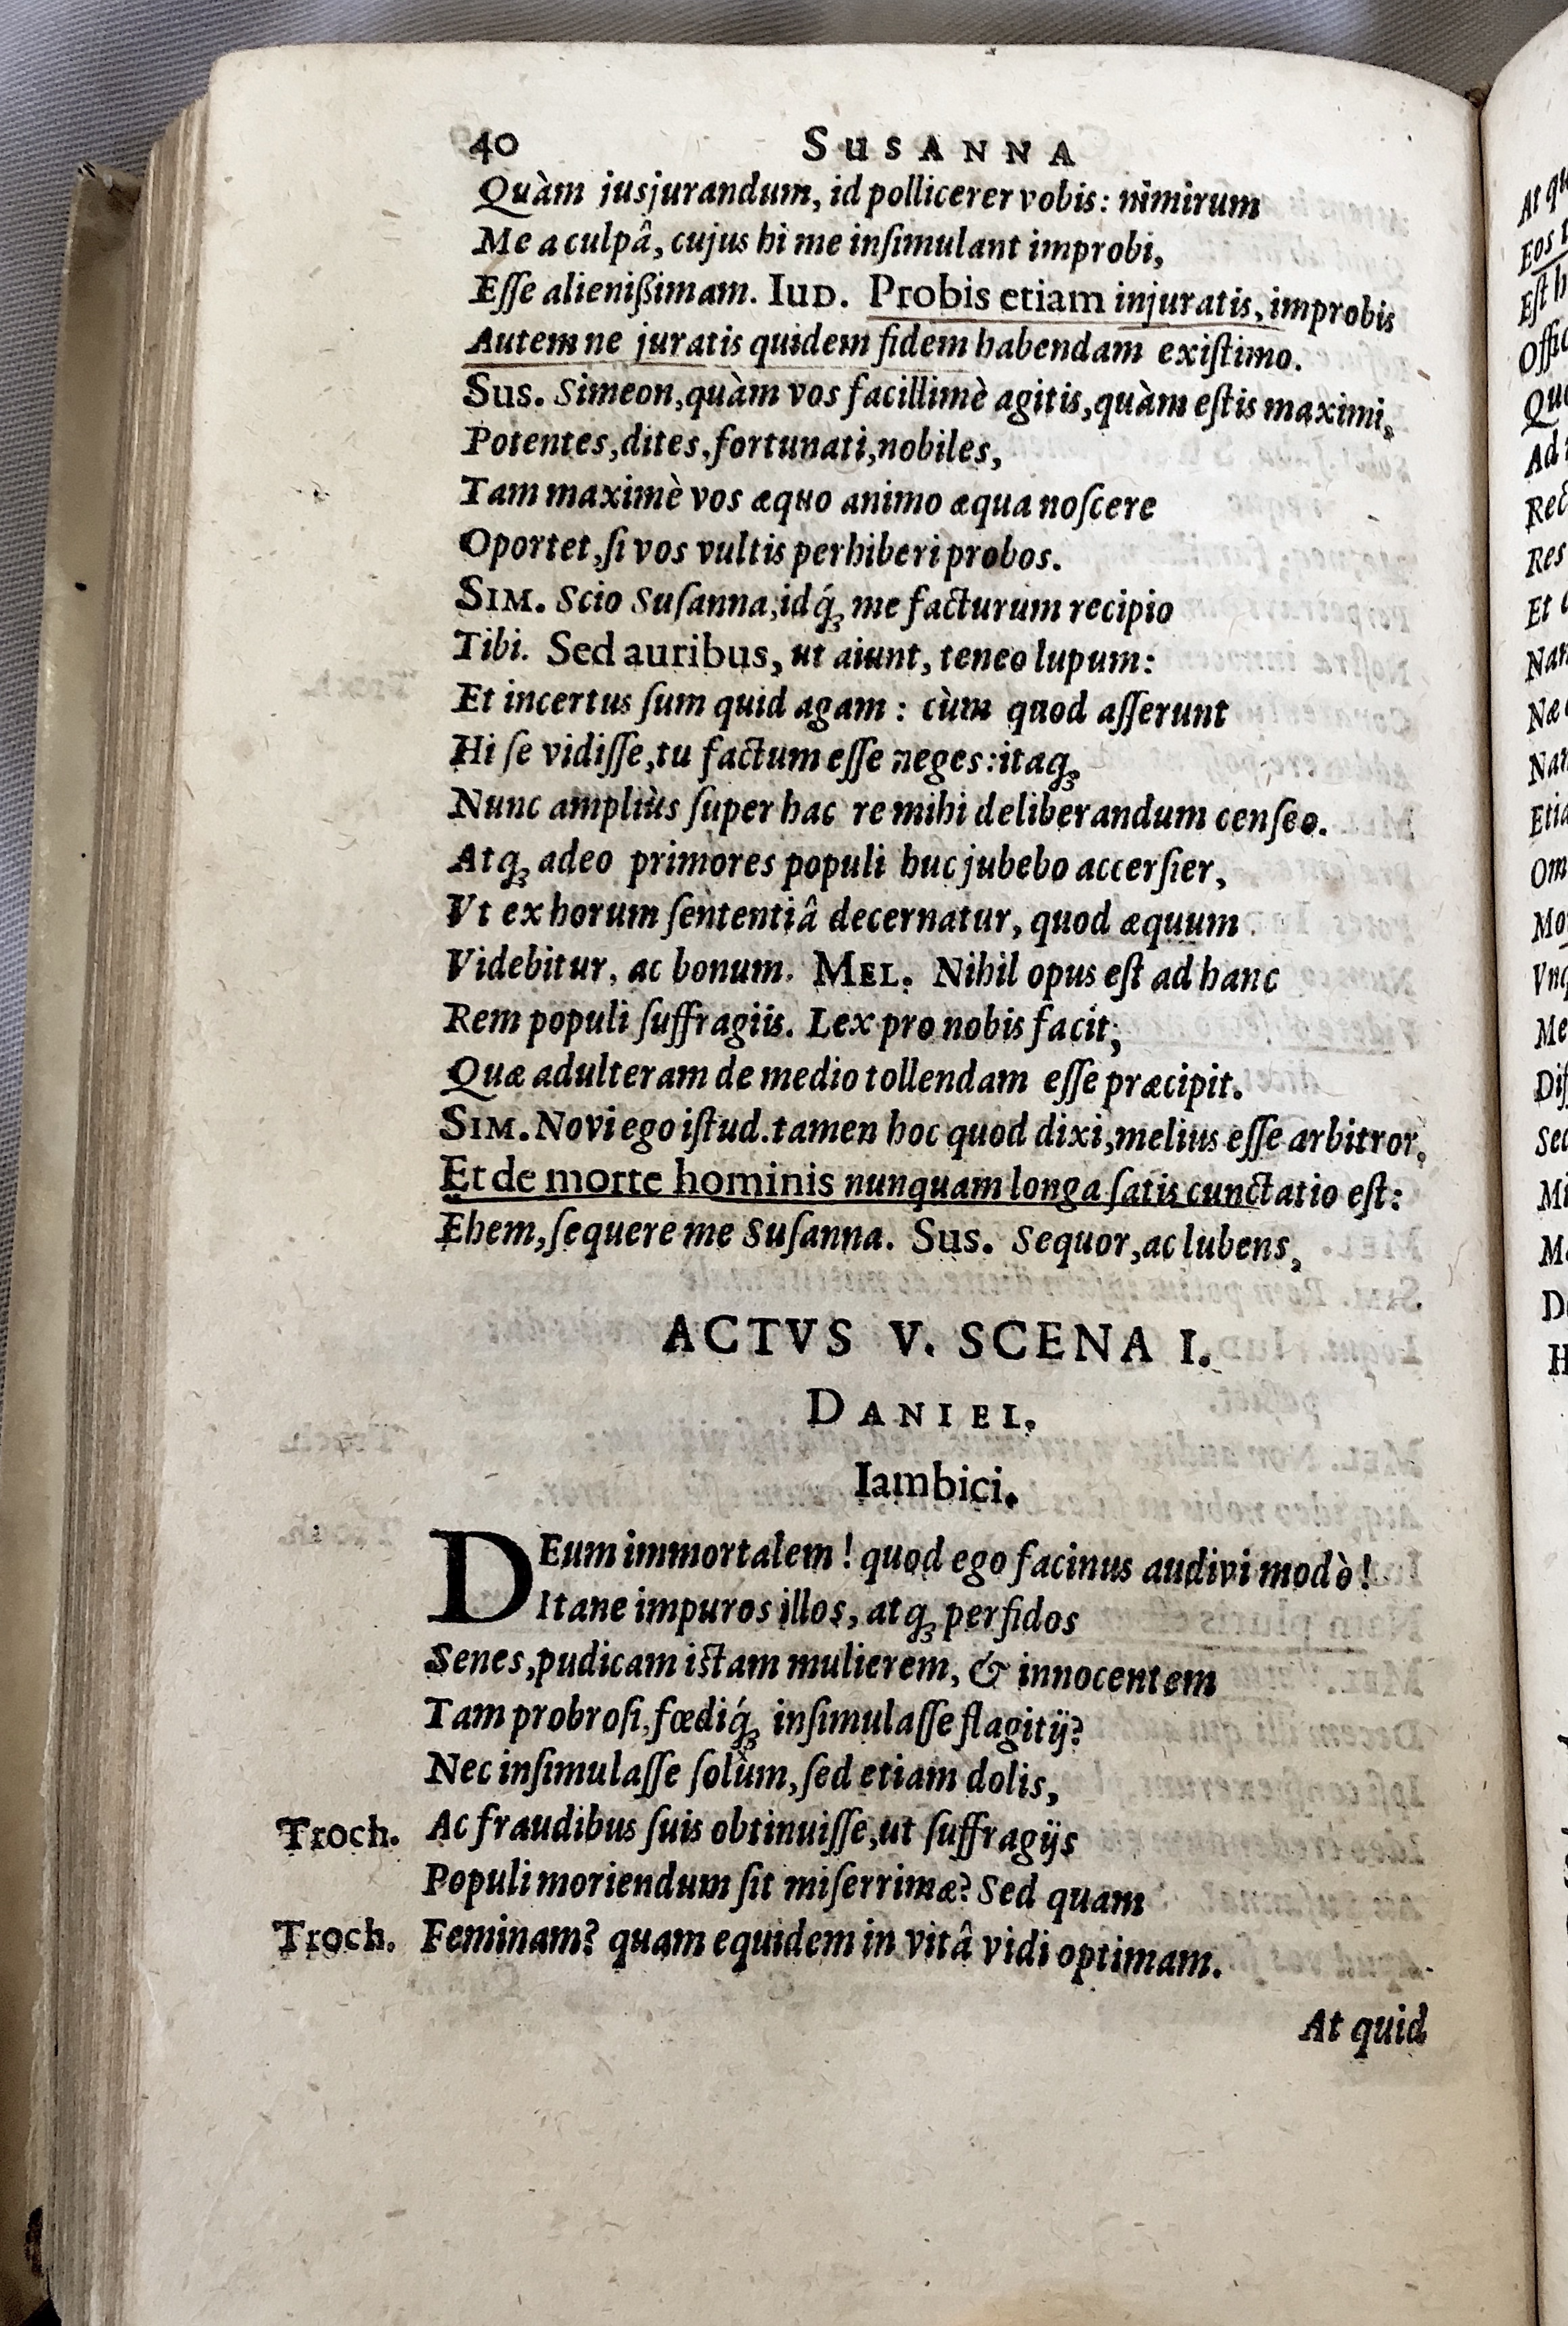 40 SUSANNA
Quàm jusjurandum, id pollicerer vobis: nimirum
Me a culpâ, cujus hi me inſimulant improbi,
Eſſe alienißimam. IUD. Probis etiam injuratis, improbis
Autem ne juratis quidem fidem habendam exiſtimo.
SUS. Simeon, quàm vos facillimè agitis, quàm eſtis maximi,
Potentes, dites, fortunati, nobiles,
Tam maximè vos æquo animo æqua noſcere
Oportet, ſi vos vultis perhiberi probos.
SIM. Scio Suſanna, idq́ꝫ me facturum recipio
Tibi. Sed auribus, ut aiunt, teneo lupum:
Et incertus ſum quid agam: cùm quod aſſerunt
Hi ſe vidiſſe, tu factum eſſe neges: itaqꝫ
Nunc ampliùs ſuper hac re mihi deliberandum cenſeo.
Atqꝫ adeo primores populi huc jubebo accerſier,
Vt ex horum ſententiâ decernatur, quod æquum
Videbitur, ac bonum. MEL. Nihil opus eſt ad hanc
Rem populi ſuffragiis. Lex pro nobis facit;
Quæ adulteram de medio tollendam eſſe præcipit.
SIM. Novi ego iſtud. tamen hoc quod dixi, melius eſſe arbitror,
Et de morte hominis nunquam longa ſatis cunctatio eſt:
Ehem, ſequere me Suſanna. SUS. Sequor, ac lubens,
ACTVS V. SCENA I.
DANIEL.
Iambici.
DEum immortalem! quod ego facinus audivi modò!
Itane impuros illos, atqꝫ perfidos
Senes, pudicam iſtam mulierem, & innocentem
Tam probroſi, fœdiq́ꝫ inſimulaſſe flagitij?
Nec inſimulaſſe ſolùm, ſed etiam dolis,
Troch. Ac fraudibus ſuis obtinuiſſe, ut ſuffragijs
Populi moriendum ſit miſerrimæ? Sed quam
Troch. Feminam? quam equidem in vitâ vidi optimam.
At quid